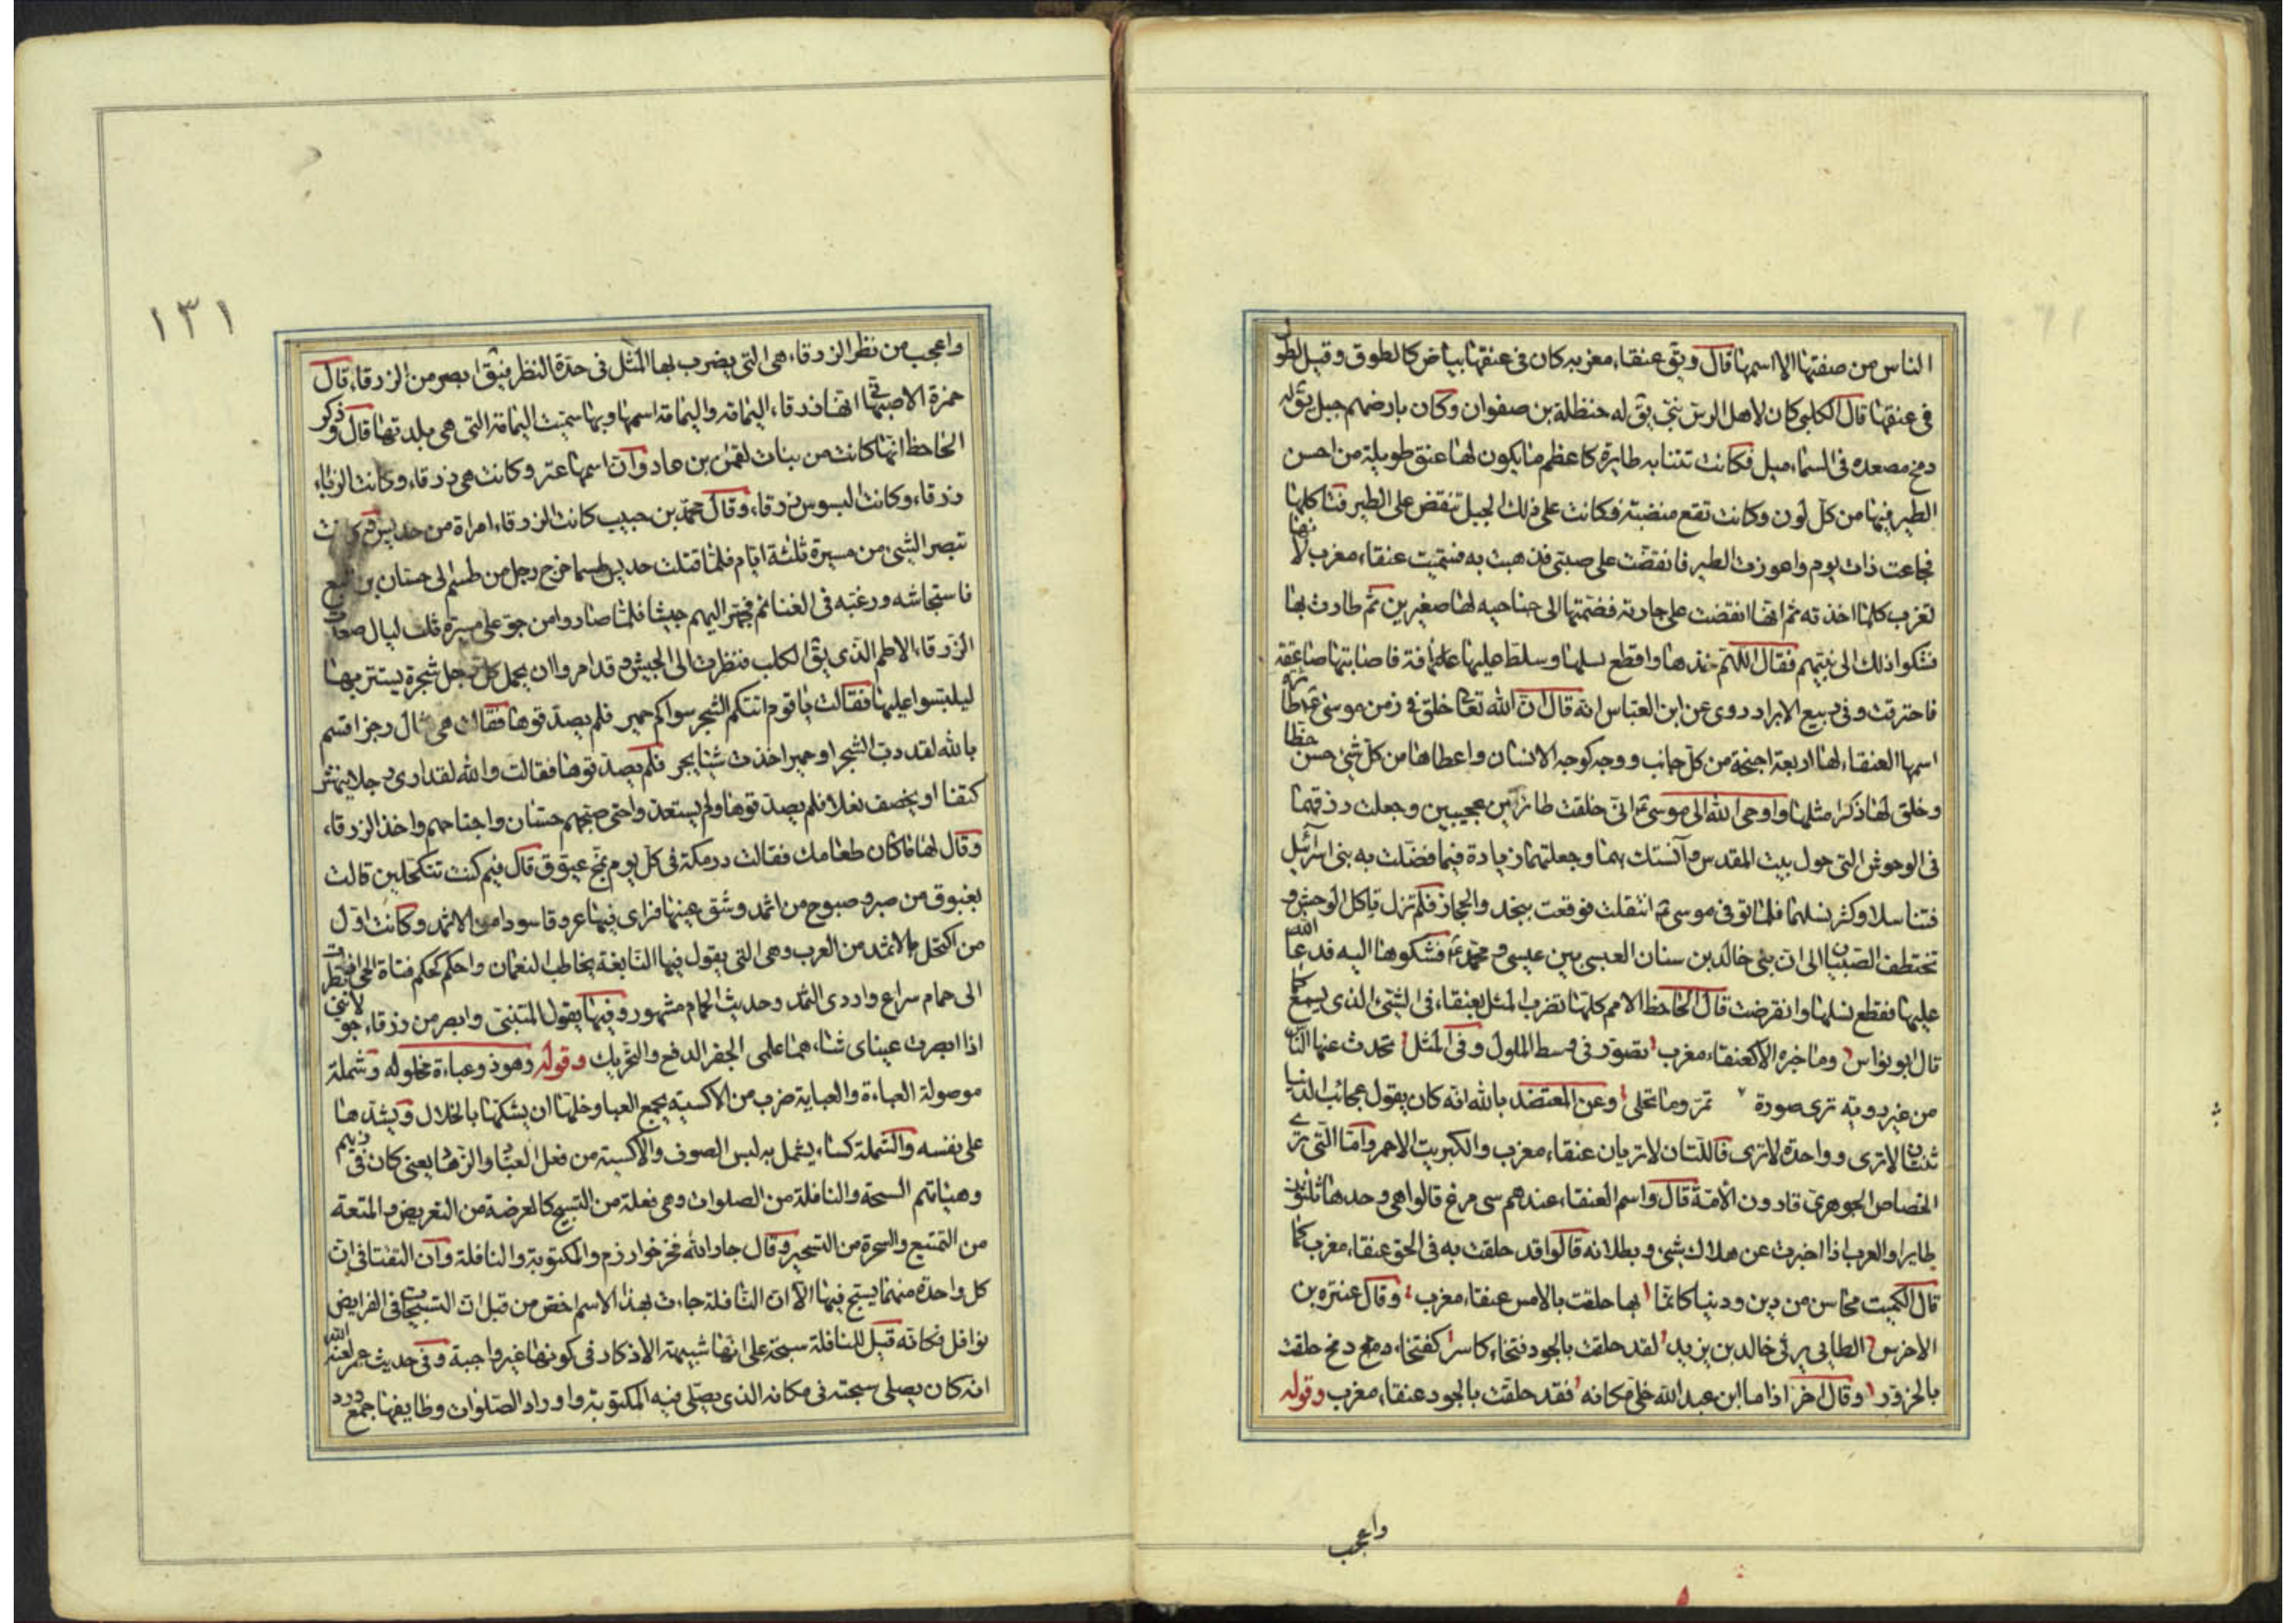 الناس من صفتها الا اسمها قال ويق عنقاء مغربه كان في عنقها بياض كالطوق وقيل لطول
في عنقها قال الكلبي كان لاهل الرس نبي يق له حنظلة بن صفوان وكان بارضهم جبل يق له
دمخ مصعده في السماء ميل فكانت تنتابه طايرة كاعظم ما يكون لها عنق طويلة من احسن
الطير فيها من كل لون وكانت تقع منضبة فكانت على ذلك الجبل تنقض على الطير فتاكلها
فجاعت ذات يوم واعوزت الطير فانقضت على صبي فذهبت به فسميت عنقاء مغرب لانها
تغرب كلما اخذته ثم انها انقضت على جارية فضمتها الى جناحيه لها صغيرين ثم طارت بها
فشكوا ذلك الى نبيهم فقال اللهم خذها واقطع نسلها وسلط عليها افة فاصابتها صاعقة
فاحترقت وفي ربيع الابرار روى عن ابن العباس انه قال ان الله تعا خلق في زمن موسى طائرة
اسمها العنقاء لها اربعة اجنحة من كل جانب ووجه كوجه الانسان واعطاها من كل شئ حسن حظا
وخلق لها ذكرا مثلها واوحى الله الى موسى اني خلقت طائرين عجيبين وجعلت رزقهما
في الوحوش التي حول بيت المقدس وآنستك بهما وجعلتهما زيادة فيما فضلت به بني اسرائيل
فتناسلا وكثر نسلهما فلما توفي موسى انتقلت فوقعت بنجد والحجاز فلم تزل تاكل الوحش و
تختطف الصبيان الى ان نبئ خالد بن سنان العبسي بين عيسى ومحمد فشكوها اليه فدعا الله
عليها فقطع نسلها وانقرضت قال الجاحظ الامم كلها تضرب المثل بعنقاء في الشئ الذي يسمع كما
قال ابو نواس وما خبزه الا كعنقاء مغرب تصور في بسط الملوك وفي المثل تحدث عنها الناس
من غير روية ترى صورة تمر وما تحلى وعن المعتضد بالله انه كان يقول عجائب الدنيا
ثنتان لا ترى وواحدة لا ترى فاللتان لا تريان عنقاء مغرب والكبريت الاحمر واما التي ترى
الخصاص الجوهري قارون الامة قال واسم العنقاء عندهم سى مرغ قالوا هي وحدها ثلثون
طايرا والعرب اذا اخبرت عن هلاك شئ وبطلانه قالوا قد حلقت به في الجو عنقاء مغرب كما
قال الكميت محاسن من دين ودنيا كانما بها حلقت بالامس عنقاء مغرب وقال عنترة بن
الاخرس الطايي يرثي خالد بن يزيد لقد حلقت بالجود فتخاء كاسر كفتخاء دمخ حلقت
بالحزور وقال اخر اذا ما ابن عبد الله خلى مكانه فقد حلقت بالجود عنقاء مغرب وقوله
واعجب
١٣١
واعجب من نظر الزرقاء هي التي يضرب بها المثل في حدة النظر فيق ابصر من الزرقاء قال
حمزة الاصبهاني انها زرقاء اليمامة واليمامة اسمها وبها سميت اليمامة التي هي بلدتها قال وذكر
الجاحظ انها كانت من بنات لقمن بن عاد وان اسمها عنز وكانت هي زرقاء وكانت الزباء
زرقاء وكانت البسوس زرقاء وقال محمد بن حبيب كانت الزرقاء امراة من جديس وكانت
تبصر الشئ من مسيرة ثلثة ايام فلما قتلت جديس طسما خرج رجل من طسم الى حسان بن تبع
فاستجاشه ورغبه في الغنائم فجهز اليهم جيشا فلما صاروا من جو على مسيرة ثلث ليال صعدت
الزرقاء الاطم الذي يق الكلب فنظرت الى الجيش وقد امروا ان يحمل كل رجل شجرة يستتر بها
ليلبسوا عليها فقالت يا قوم اتتكم الشجر سواكم حمير فلم يصدقوها فقالت هي مثال رجز اقسم
بالله لقد دب الشجر او حمير اخذت شيئا يجر فلم يصدقوها فقالت والله لقد ارى رجلا ينهش
كتفا او يخصف نعلا فلم يصدقوها ولم يستعدوا حتى صبحهم حسان واجتاحهم واخذ الزرقاء
وقال لها ما كان طعامك فقالت درمكة في كل يوم بمخ عبوق قال فبم كنت تتكحلين قالت
بغبوق من صبر وصبوح من اثمد وشق عينها فراى فيها عروقا سودا من الاثمد وكانت اول
من اكتحل بالاثمد من العرب وهي التي يقول فيها النابغة يخاطب النعمان واحكم كحكم فتاة الحي اذ نظرت
الى حمام سراع وارد الثمد وحديث الحمام مشهور وفيها يقول المتنبي وابصر من زرقاء جو لانني
اذا ابصرت عيناي شاءهما علمي الحفز الدفع والتحريك وقوله وهو ذو عباءة مخلوله وشملة
موصولة العباءة والعباية ضرب من الاكسية يجمع العبا وخلها ان يشكها بالخلال ويشدها
على نفسه والشملة كساء يشمل به لبس الصوف والاكسية من فعل العباد والزهاد يعني كان في زيهم
وهيئاتهم السبحة والنافلة من الصلوات وهي فعلة من التسبيح كالعرضة من التعريض والمتعة
من التمتيع والسحرة من التسحير وقال جار الله فخر خوارزم والمكتوبة والنافلة وان التقتا في ان
كل واحدة منهما يسبح فيها الا ان النافلة جاءت بهذا الاسم اخص من قبل ان التسبيحات في الفرايض
نوافل فكانه قيل للنافلة سبحة على انها شبيهة الاذكار في كونها غير واجبة وفي حديث عمر لعنه الله
انه كان يصلى سبحته في مكانه الذي يصلى فيه المكتوبة واوراد الصلوات وظايفها جمع ورد